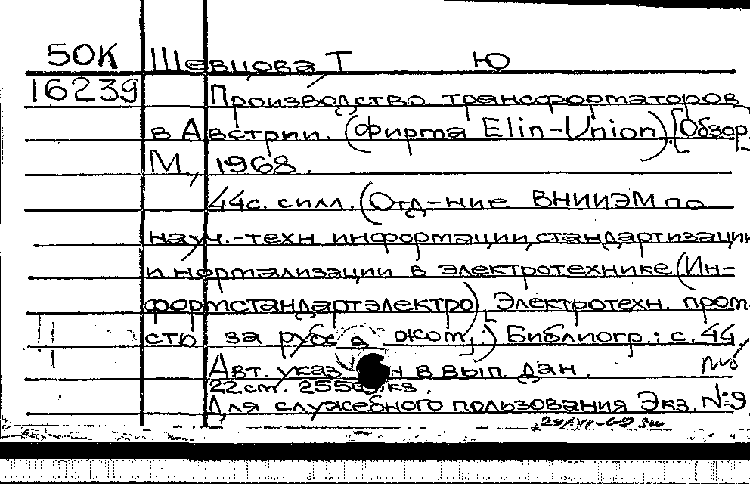 50К Шевцова Т Ю
16239 Производство трансформаторов
в Австрии. (Фирма Elin-Union) [Обзор
М., 1968.
44с. с илл. (Отд-ние ВНИИЭМ по
науч.-техн информации, стандартизации
и нормализации в электротехнике (Ин-
формстандартэлектро) Электротехн. пром
сть за рубежом.) Библиогр.: с. 44
Авт. указан в вып. дан.
22 см.
Для служебного пользования Экз. №9